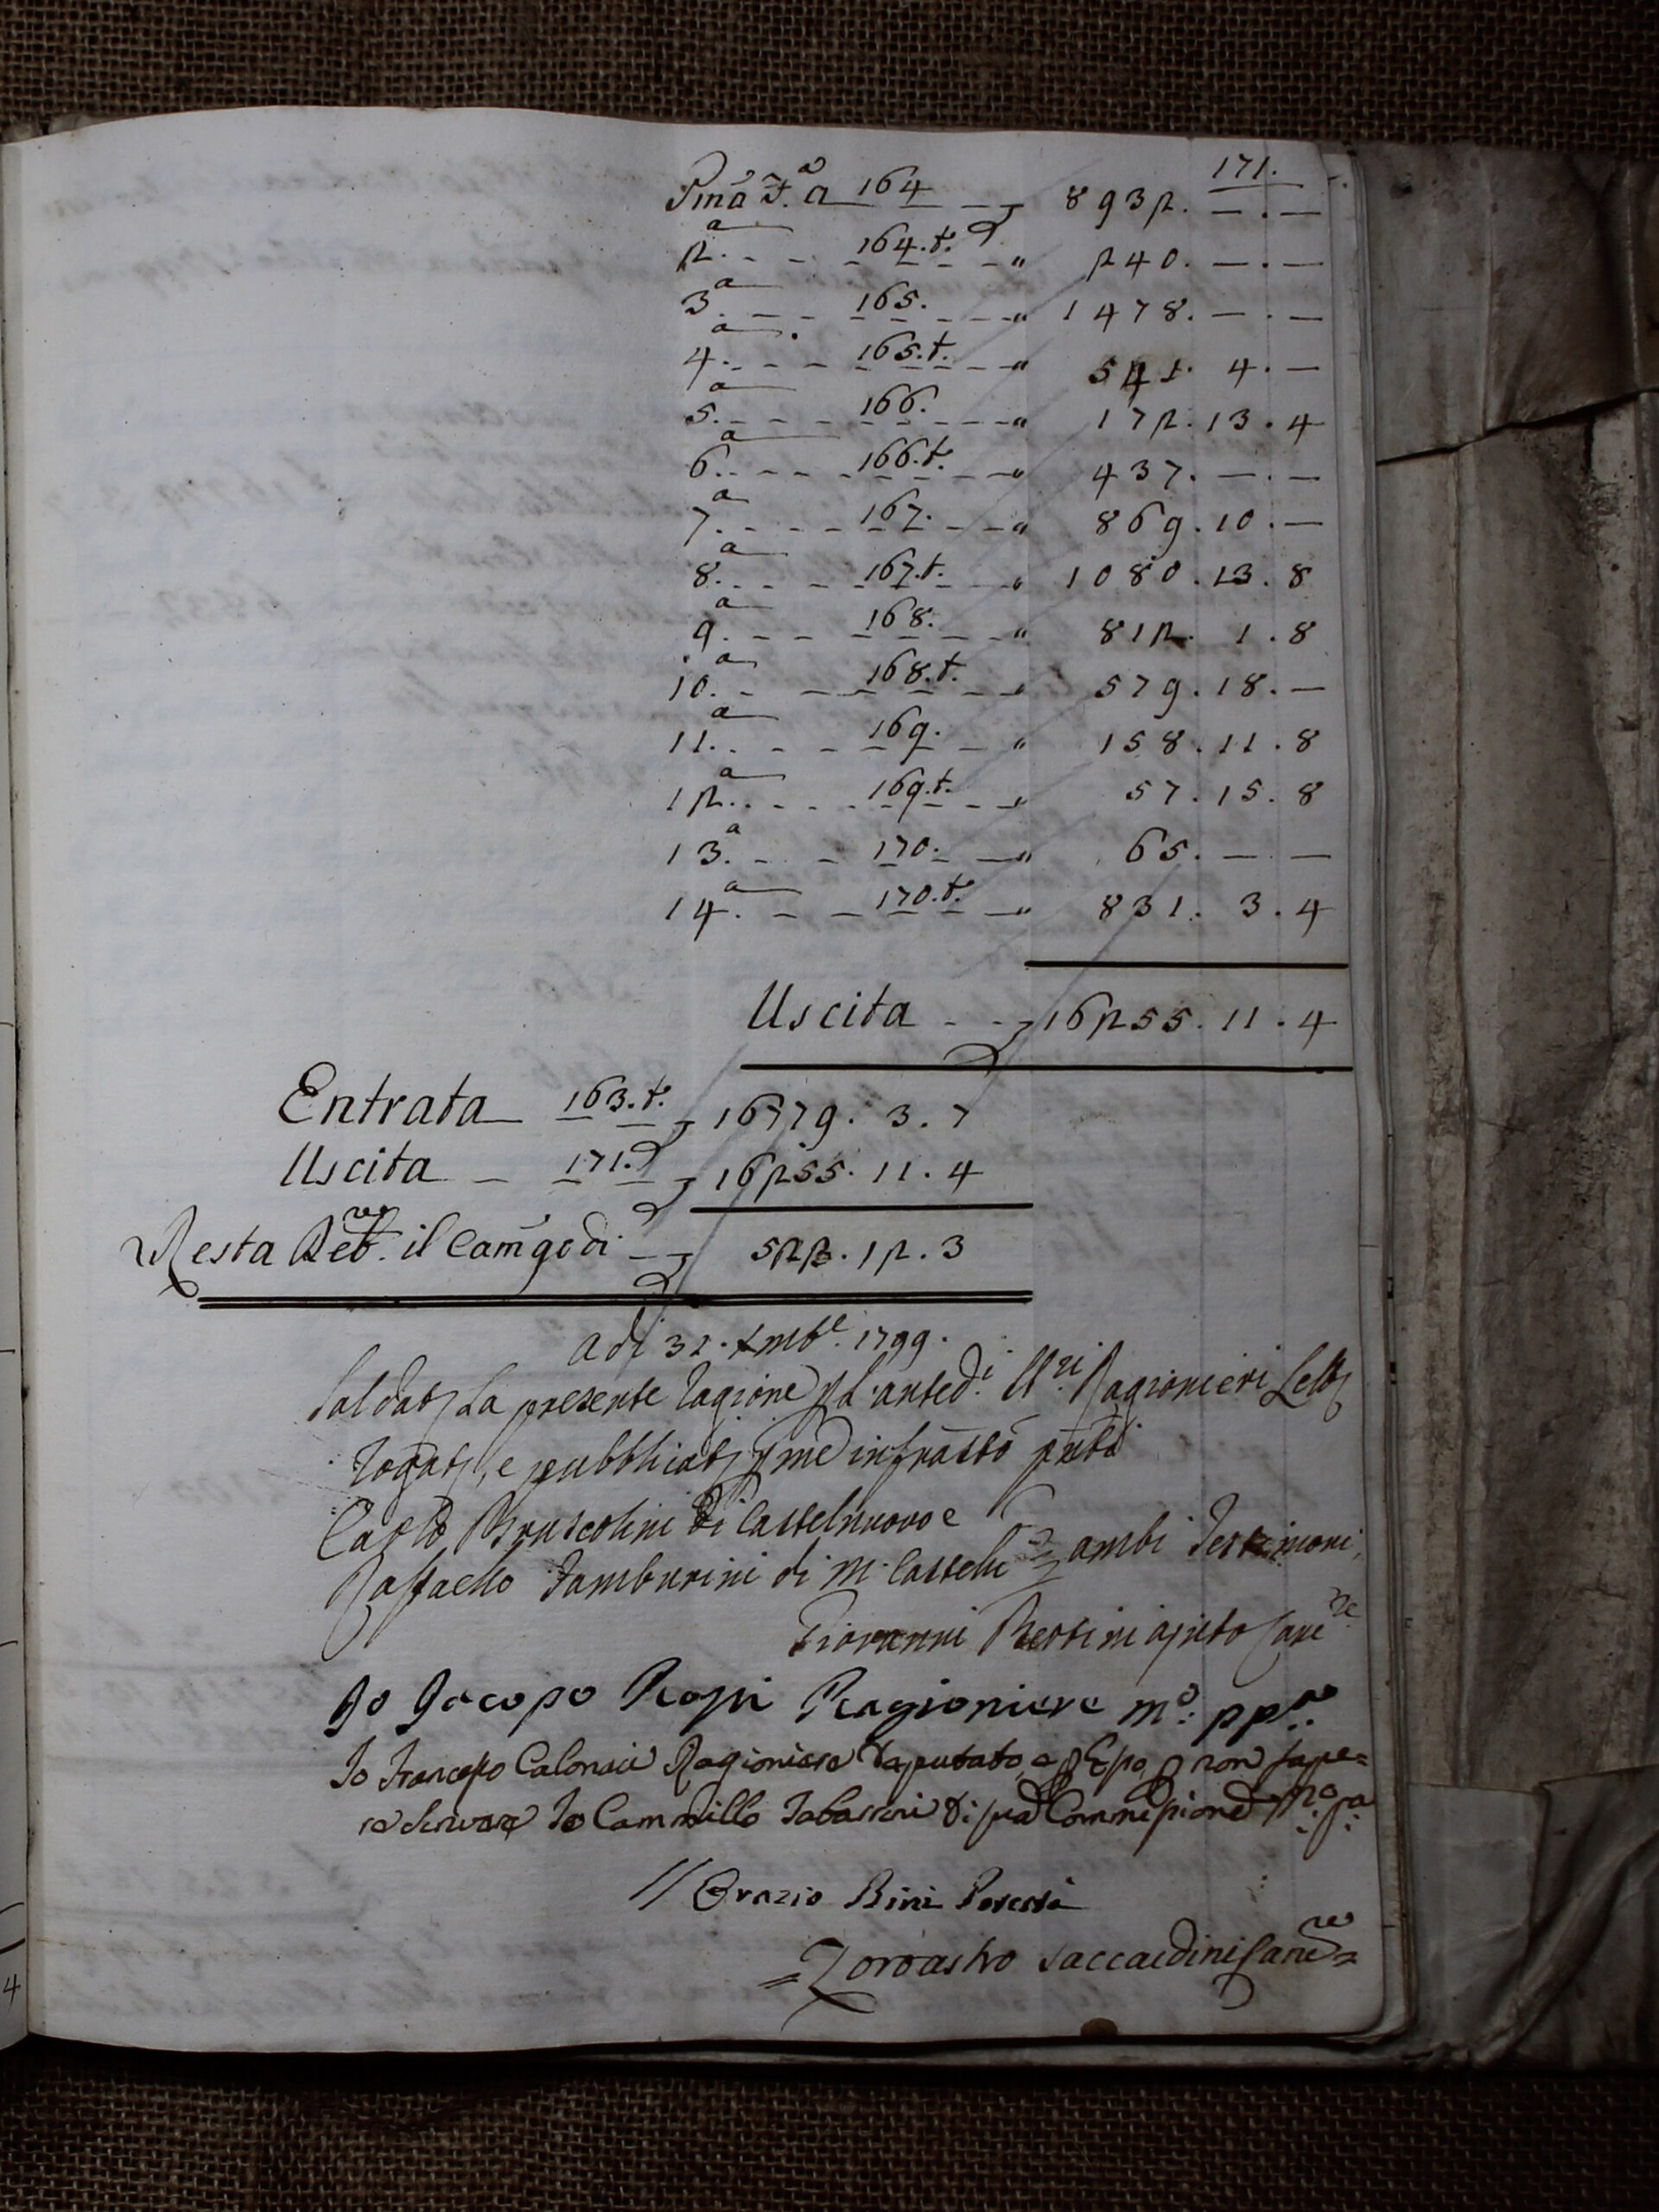 171.
Pma F.a 164 -- 8932. — . —
2.a - - 164.t. - " 240. — . —
3.a - - 165. - " 1478. — . —
4.a - - 165.t. - " 541. 4. —
5.a - - 166. - " 172. 13. 4
6.a - - 166.t. - " 437. — . —
7.a - - 167. - " 869. 10. —
8.a - - 167.t. - " 1080. 13. 8
9.a - - 168. - " 812. 1. 8
10.a - - 168.t. - " 579. 18. —
11.a - - 169. - " 158. 11. 8
12.a - - 169.t. - " 57. 15. 8
13.a - - 170. - " 65. — —
14.a - - 170.t. - " 831. 3. 4
Uscita - - 16255. 11. 4
Entrata — 163.t. 16779. 3. 7
Uscita — 171. 16255. 11. 4
Resta Deb.re il Camgo di — 523. 12. 3
adi 31. Xmbe. 1799.
Saldata la presente ragione p li anted.i Ragionieri letta
rogata, e pubblicata p me infratto
Carlo Bruscolini di Castelnuovo e
Raffaello Tamburini di M. Castelli ambi Testimoni
Giovanni Bertini ajuto Canc.re
Io Jacopo Rossi Ragioniere mo: ppa:
Io Francesco Calonaci Ragioniere deputato, e p Esso p non sape=
re scrivere Io Cammillo Tabarrini di sua Commissione mo: pa:
// Orazio Bini Potestà
= Zoroastro Saccardini Cancre =